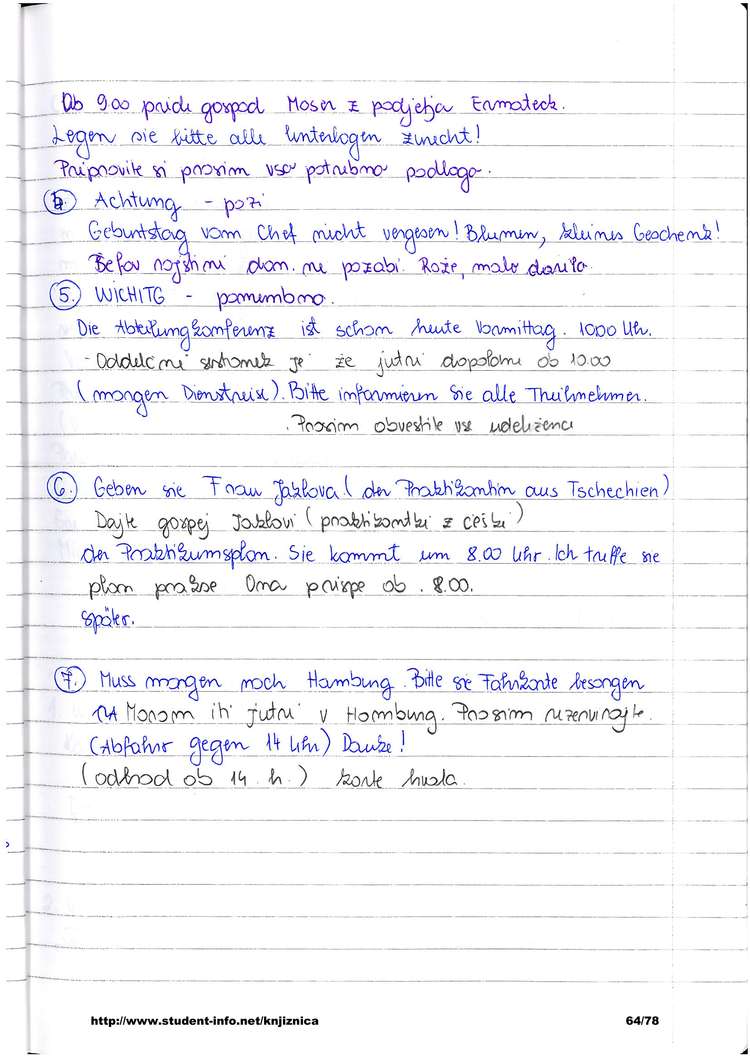 Ob 9.00 pride gospod Moser z podjetja Ermateck.
Legen sie bitte alle Unterlagen zurecht!
Pripravite si prosim vso potrebno podlago.
4. Achtung - pozi
Geburtstag vom Chef nicht vergesen! Blumen, kleines Geschenk!
Šefov rojstni dan. ne pozabi. Rože, malo darilo.
5. WICHITG - pomembno.
Die Abteilungkonferenz ist schon heute Vormittag. 1000 Uhr.
- Oddelčni sestanek je že jutri dopoldne ob 10.00
(morgen Dienstreise). Bitte informieren Sie alle Theilnehmer.
. Prosim obvestite vse udeležence
6. Geben sie Frau Jaklova (der Praktikantin aus Tschechien)
Dajte gospej Jaklovi (praktikantki z češke)
den Praktikumsplan. Sie kommt um 8.00 Uhr. Ich treffe sie
plan prakse Ona prispe ob . 8.00.
später.
7. Muss morgen noch Hamburg. Bitte sie Fahrkarte besorgen
Moram iti jutri v Hamburg. Prosim rezervirajte.
(Abfahrt gegen 14 Uhr) Danke!
(odhod ob 14. h.) karte hvala.
http://www.student-info.net/knjiznica
64/78